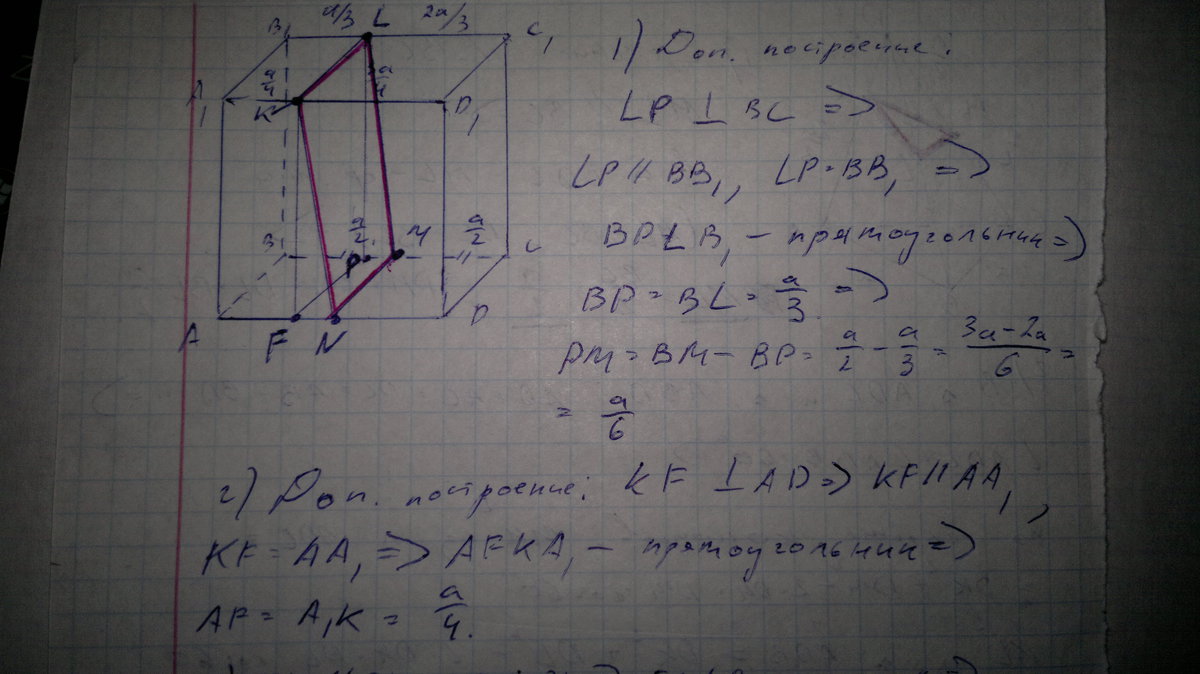 a/3 L 2a/3
B₁ C₁
a/4 a/4
A₁ K D₁
a/2 M a/2
B P C
A F N D
1) Доп. построение:
LP ⊥ BC =>
LP ∥ BB₁, LP = BB₁ =>
BPLB₁ – прямоугольник =>
BP = BL = a/3 =>
PM = BM – BP = a/2 – a/3 = (3a – 2a)/6 =
= a/6
2) Доп. построение: KF ⊥ AD => KF ∥ AA₁,
KF = AA₁ => AFKA₁ – прямоугольник =>
AF = A₁K = a/4.